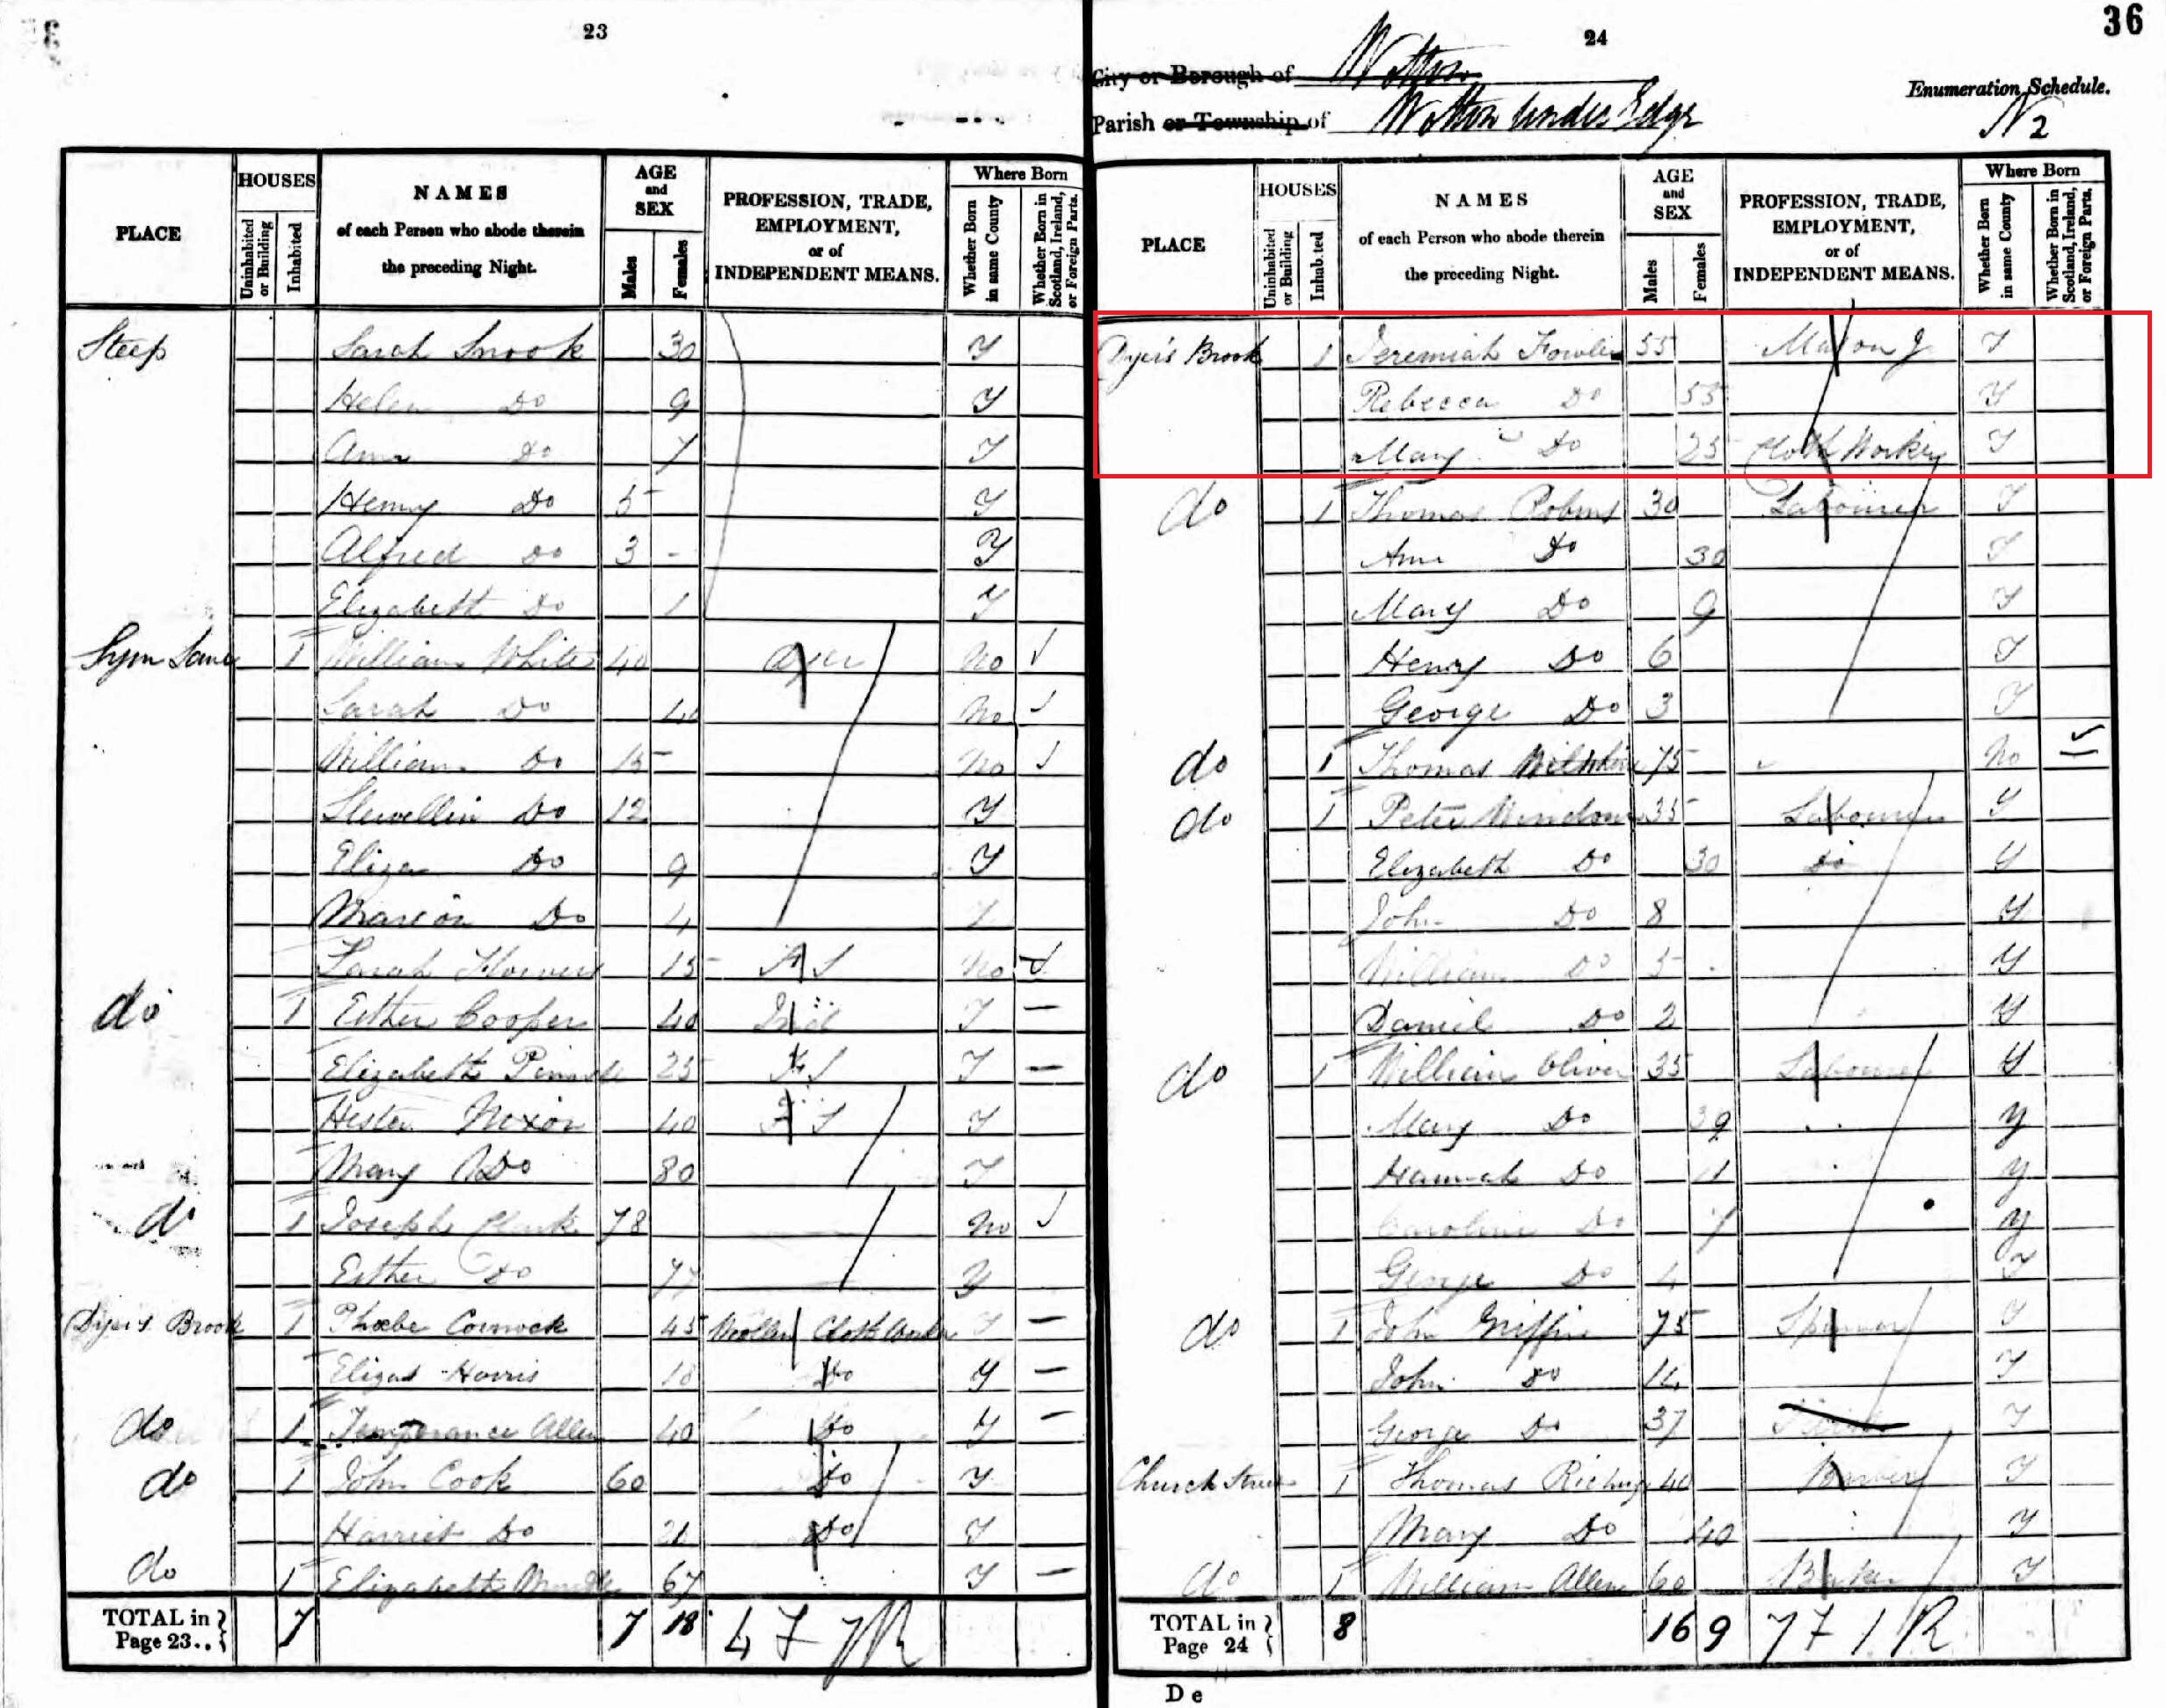 23
PLACE
HOUSES
Uninhabited or Building
Inhabited
NAMES
of each Person who abode therein
the preceding Night.
AGE
and
SEX
Males
Females
PROFESSION, TRADE,
EMPLOYMENT,
or of
INDEPENDENT MEANS.
Where Born
Whether Born in same County
Whether Born in Scotland, Ireland, or Foreign Parts.
Steep Sarah Snook 30 Y
Helen Do 9 Y
Ann Do 7 Y
Henry Do 5 Y
Alfred Do 3 - Y
Elizabeth Do 1 Y
Sym Lane 1 William White 40 Dyer No
Sarah Do 40 No
William Do 15 No
Llewellin Do 12 Y
Eliza Do 9 Y
Marion Do 4 Y
Sarah 15 F S No
do 1 Esther Cooper 40 Ind Y -
Elizabeth 25 F S Y -
Hester Nixon 40 F S Y
Mary Do 80 Y
do 1 Joseph Clark 78 No
Esther Do 77 Y
Dyers Brook 1 Phoebe Cornock 45 Woollen Cloth Worker Y -
Elizas Harris 18 Do Y -
do 1 Temperance Allen 40 Do Y -
do 1 John Cook 60 Do Y
Harriet Do 21 Do Y
do 1 Elizabeth 67 Y -
TOTAL in Page 23.. 7 7 18 47 7R
24
36
City or Borough of Wotton
Parish or Township of Wotton under Edge
Enumeration Schedule.
N 2
PLACE
HOUSES
Uninhabited or Building
Inhabited
NAMES
of each Person who abode therein
the preceding Night.
AGE
and
SEX
Males
Females
PROFESSION, TRADE,
EMPLOYMENT,
or of
INDEPENDENT MEANS.
Where Born
Whether Born in same County
Whether Born in Scotland, Ireland, or Foreign Parts.
Dyers Brook 1 Jeremiah Fowler 55 Mason J Y
Rebecca Do 55 Y
Mary Do 25 Cloth Worker Y
do 1 Thomas Robins 30 Labourer Y
Ann Do 30 Y
Mary Do 9 Y
Henry Do 6 Y
George Do 3 Y
do 1 Thomas Wiltshire 75 No
do 1 Peter 35 Labourer Y
Elizabeth Do 30 Do Y
John Do 8 Y
William Do 5 Y
Daniel Do 2 Y
do 1 William Oliver 35 Labourer Y
Mary Do 39 Y
Hannah Do 11 Y
Caroline Do 7 Y
George Do 4 Y
do 1 John Griffin 75 Spinner Y
John Do 14 Y
George Do 37 Y
Church Street 1 Thomas 40 Y
Mary Do 40 Y
do 1 William Allen 60 Baker Y
TOTAL in Page 24 8 16 9 77 1R
De